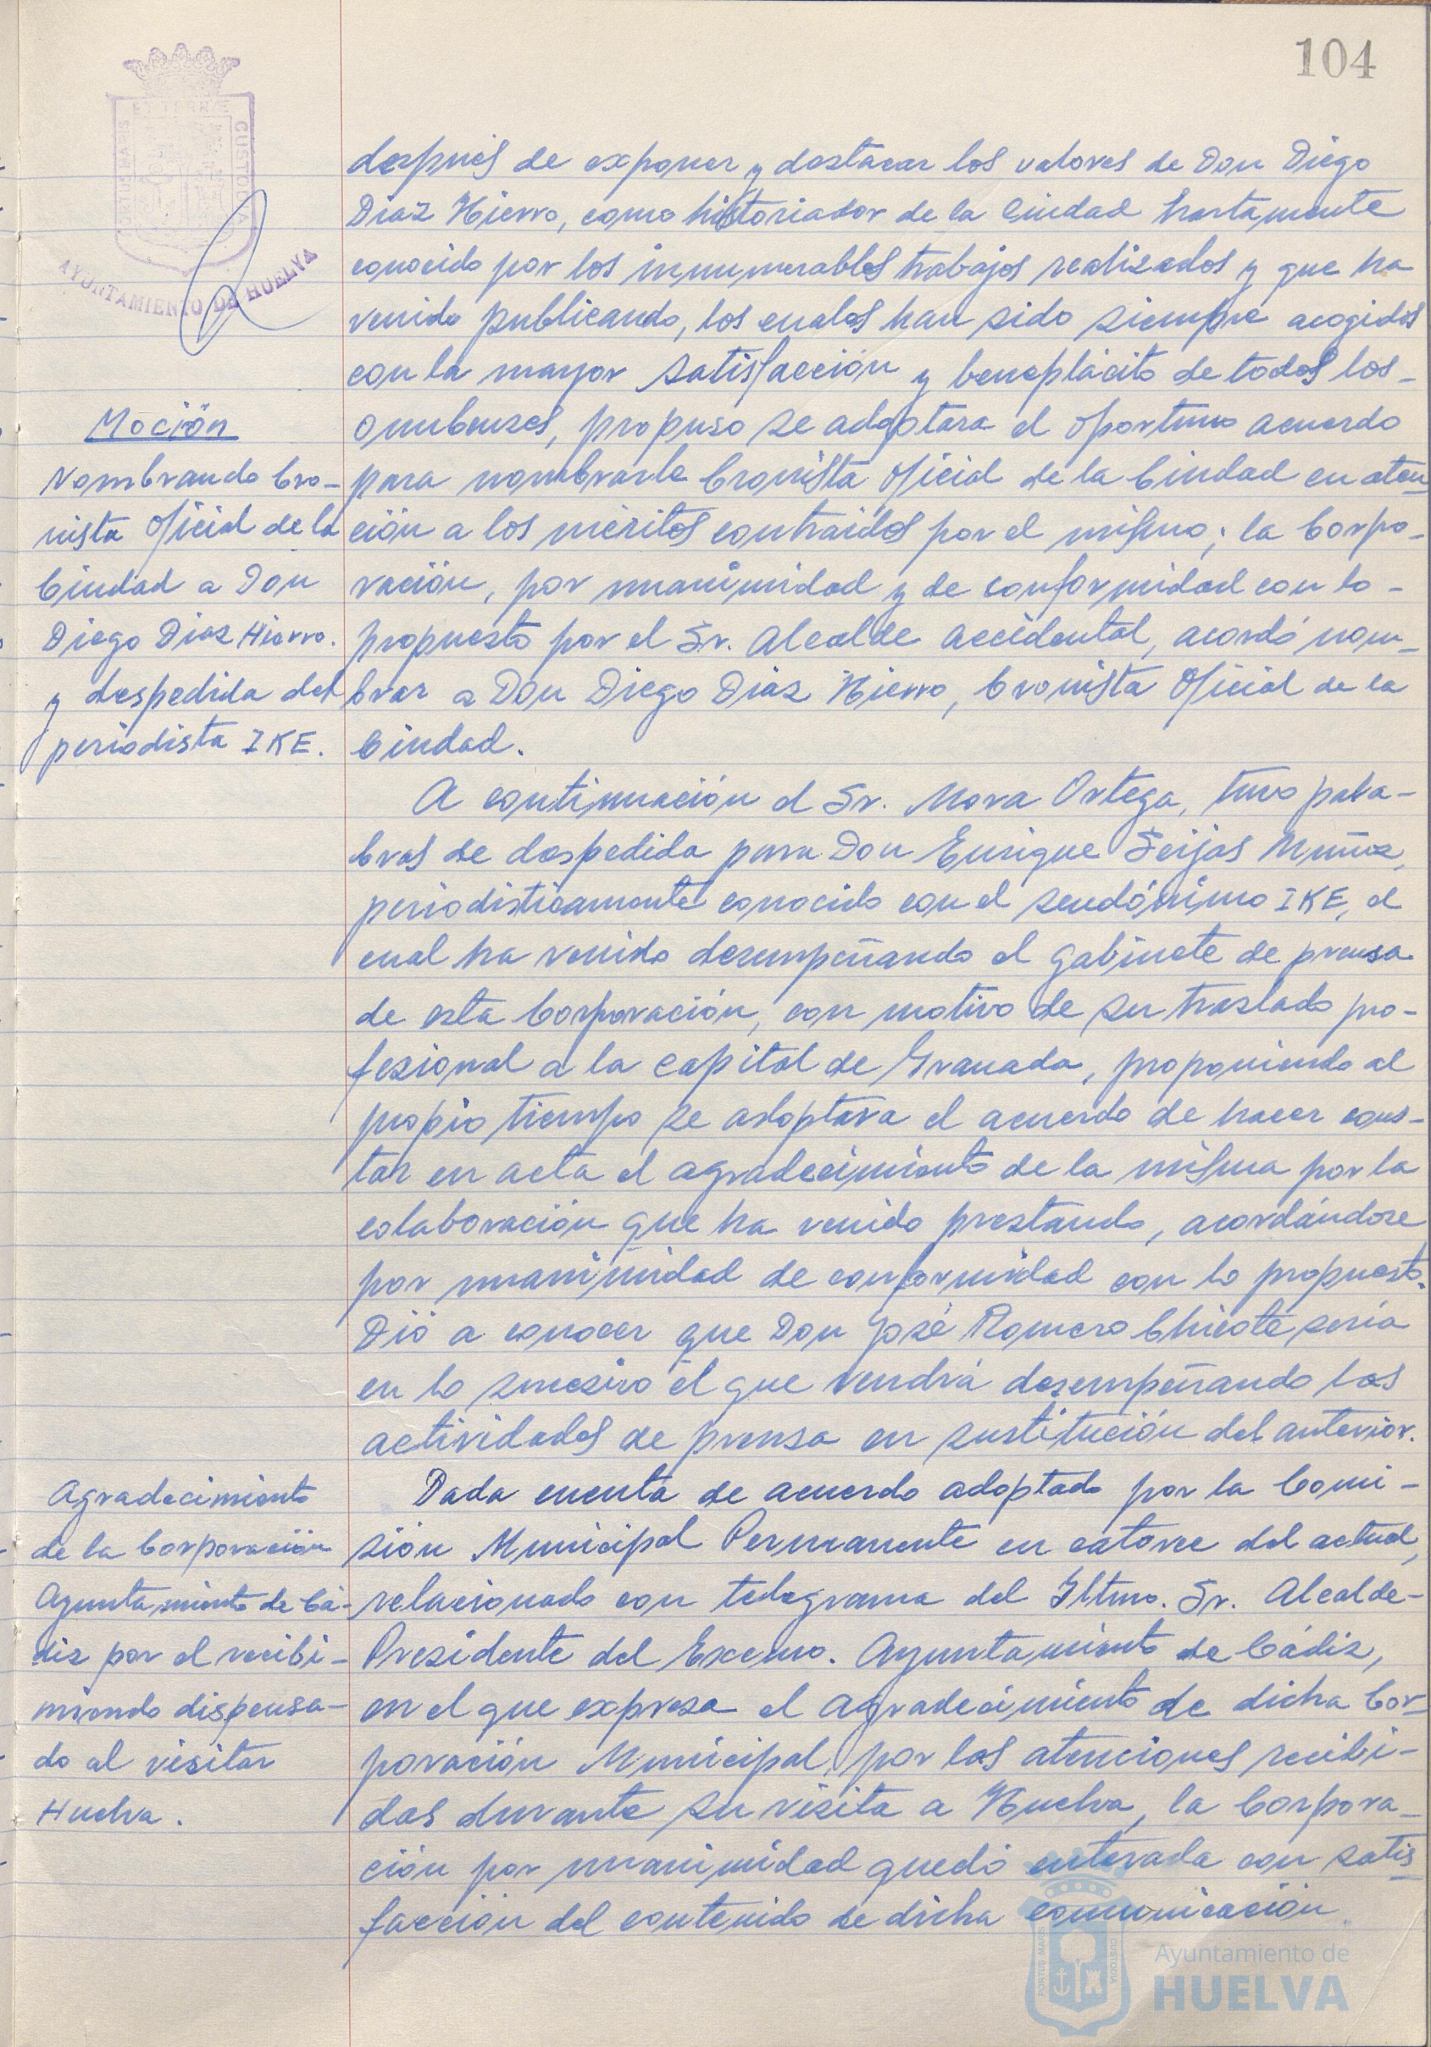 104
PORTUS MARIS ET TERRAE CUSTODIA
AYUNTAMIENTO DE HUELVA
después de exponer y destacar los valores de Don Diego
Diaz Hierro, como historiador de la Ciudad hartamente
conocido por los innumerables trabajos realizados y que ha
venido publicando, los cuales han sido siempre acogidos
con la mayor satisfacción y beneplácito de todos los-
onubenses, propuso se adoptara el oportuno acuerdo
para nombrarle Cronista Oficial de la Ciudad en aten-
ción a los méritos contraidos por el mismo; la Corpo-
ración, por unanimidad y de conformidad con lo-
propuesto por el Sr. Alcalde accidental, acordó nom-
brar a Don Diego Diaz Hierro, Cronista Oficial de la
Ciudad.
Moción
Nombrando Cro-
nista Oficial de la
Ciudad a Don
Diego Diaz Hierro.
y despedida del
periodista IKE.
A continuación el Sr. Mora Ortega, tuvo pala-
bras de despedida para Don Enrique Seijas Muñoz,
periodisticamente conocido con el seudónimo IKE, el
cual ha venido desempeñando el gabinete de prensa
de esta Corporación, con motivo de su traslado pro-
fesional a la capital de Granada, proponiendo al
propio tiempo se adoptara el acuerdo de hacer cons-
tar en acta el agradecimiento de la misma por la
colaboración que ha venido prestando, acordándose
por unanimidad de conformidad con lo propuesto.
Dió a conocer que Don José Romero Chicote, sería
en lo sucesivo el que vendrá desempeñando las
actividades de prensa en sustitución del anterior.
Agradecimiento
de la Corporación
Ayuntamiento de Cá-
diz por el recibi-
miendo dispensa-
do al visitar
Huelva.
Dada cuenta de acuerdo adoptado por la Comi-
sión Municipal Permanente en catorce del actual,
relacionado con telegrama del Iltmo. Sr. Alcalde-
Presidente del Excmo. Ayuntamiento de Cádiz,
en el que expresa el agradecimiento de dicha Cor-
poración Municipal, por las atenciones recibi-
das durante su visita a Huelva, la Corpora-
ción por unanimidad quedó enterada con satis
facción del contenido de dicha comunicación.
PORTUS MARIS CUSTODIA
Ayuntamiento de
HUELVA